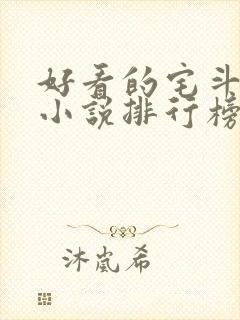 好看的宅斗
小说排行榜
沐岚希